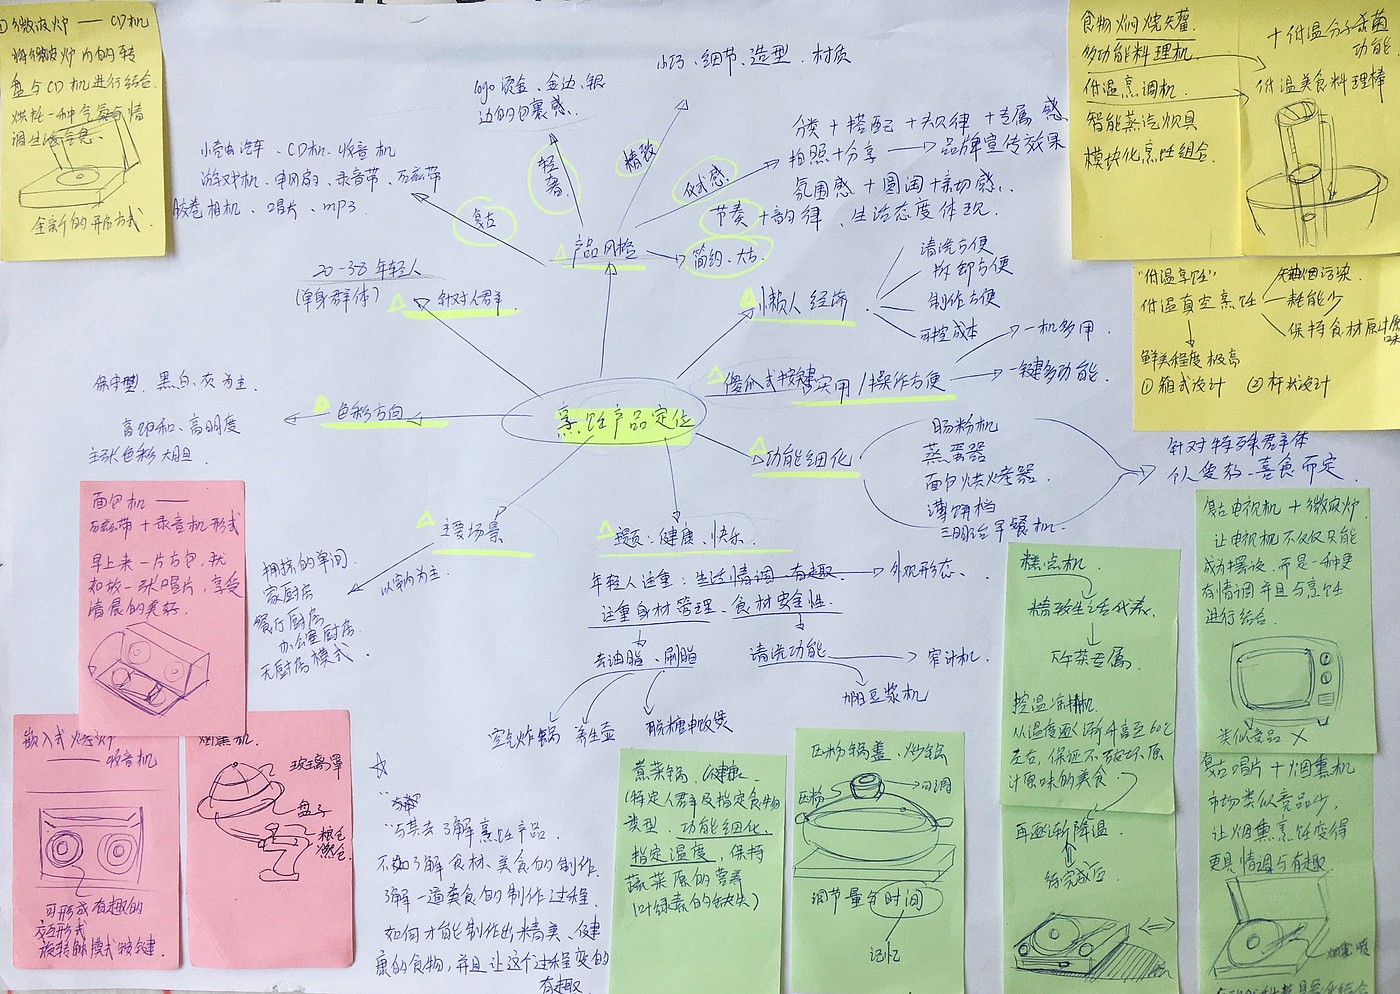 ① 微波炉 —— CD机
将微波炉内的转
盘与CD机进行结合.
烘托一种气氛与情
调生活气息.
全新的开启方式.
logo 烫金、金边、银
边的包裹感.
小巧、细节、造型、材质
轻奢
精致
仪式感
复古
小壳虫汽车、CD机、收音机
游戏机、电风扇、录音带、万磁带
胶卷相机、唱片、mp3.
分类 + 搭配 + 规律 + 专属感
拍照 + 分享 → 品牌宣传效果
氛围感 + 圆润 + 亲切感..
节奏 + 韵律、生活态度体现.
产品风格
简约、大方
食物焖烧失蓄.
多功能料理机.
低温烹调机.
智能蒸汽炊具
模块化烹饪组合.
+ 低温分子杀菌
功能.
低温美食料理棒
"低温烹饪"
低温真空烹饪
无油烟污染.
耗能少
保持食材原汁原味
鲜美程度极高
① 箱式设计 ② 杆式设计
20-38年轻人
(单身群体)
针对人群.
懒人经济
清洗方便
拆卸方便
制作方便
可控成本
一机多用.
傻瓜式按键实用/操作方便
一键多功能.
保守型. 黑白灰为主.
高饱和、高明度
主张色彩大胆.
色彩方向
烹饪产品定位
功能细化
肠粉机
蒸蛋器
面包烘烤器.
薄饼档
三明治早餐机.
针对特殊群体
个人爱好 - 喜食而定.
主要场景
以室内为主.
拥挤的单间.
家厨房
餐厅厨房
办公室厨房.
无厨房模式.
主题: 健康、快乐.
年轻人注重: 生活情调、有趣. → 外观形态、
注重身材管理、食材安全性.
去油脂、刷脂
清洗功能
榨汁机.
加豆浆机
空气炸锅
养生壶
脱糖电饭煲
面包机 ——
万磁带 + 录音机形式
早上来一片方包, 犹
如放一张唱片, 享受
清晨的美好.
嵌入式烤炉
—— 收音机
可形成有趣的
交互形式
旋转触摸式按键.
烟熏机.
玻璃罩
盘子
"与其去了解烹饪产品.
不如了解食材、美食的的制作.
了解一道美食的制作过程.
如何才能制作出精美、健
康的食物, 并且让这个过程变的
有趣.
煮菜锅. (健康).
(特定人群及指定食物
类型. 功能细化.
指定温度, 保持
蔬菜原的营养
(叶绿素的缺失)
压粉锅盖、炒锅
压粉
可调
调节量与时间
记忆
糕点机.
精致生活代表.
下午茶专属.
从温度逐渐升高至60℃
左右, 保证不破坏原
汁原味的美食.
再逐渐降温.
待完成后
复古电视机 + 微波炉.
让电视机不仅仅只能
成为摆设. 而是一种更
有情调并且与烹饪
进行结合.
类似竞品 X
复古唱片 + 烟熏机
市场类似竞品少,
让烟熏烹饪变得
更具情调与有趣.